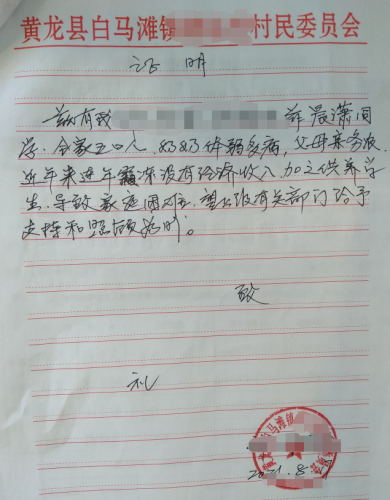 黄龙县白马滩镇 村民委员会
证 明
兹有我 薛晨潇同
学,全家五口人,奶奶体弱多病,父母亲务农,
近年来连年 没有经济收入,加之供养学
生,导致家庭困难,望上级有关部门给予
支持和照顾为盼。
致
礼
黄龙县白马滩镇